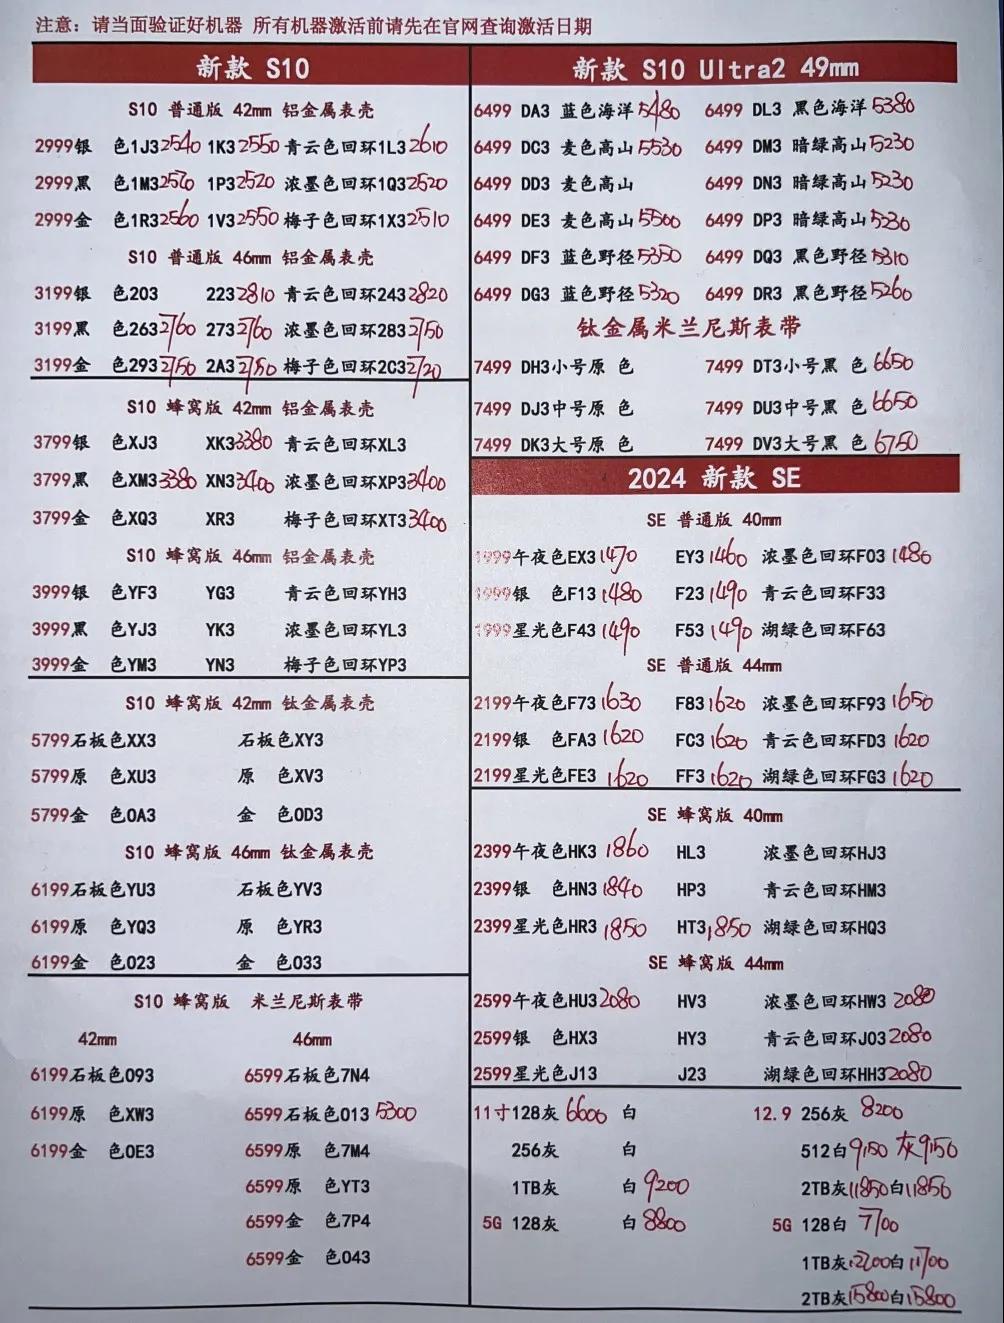 注意：请当面验证好机器 所有机器激活前请先在官网查询激活日期
新款 S10
S10 普通版 42mm 铝金属表壳
2999银 色1J3 2540 1K3 2550 青云色回环1L3 2610
2999黑 色1M3 2520 1P3 2520 浓墨色回环1Q3 2520
2999金 色1R3 2560 1V3 2550 梅子色回环1X3 2510
S10 普通版 46mm 铝金属表壳
3199银 色203 223 2810 青云色回环243 2820
3199黑 色263 2760 273 2760 浓墨色回环283 2750
3199金 色293 2750 2A3 2750 梅子色回环2C3 2720
S10 蜂窝版 42mm 铝金属表壳
3799银 色XJ3 XK3 3380 青云色回环XL3
3799黑 色XM3 3380 XN3 3400 浓墨色回环XP3 3400
3799金 色XQ3 XR3 梅子色回环XT3 3400
S10 蜂窝版 46mm 铝金属表壳
3999银 色YF3 YG3 青云色回环YH3
3999黑 色YJ3 YK3 浓墨色回环YL3
3999金 色YM3 YN3 梅子色回环YP3
S10 蜂窝版 42mm 钛金属表壳
5799石板色XX3 石板色XY3
5799原 色XU3 原 色XV3
5799金 色0A3 金 色0D3
S10 蜂窝版 46mm 钛金属表壳
6199石板色YU3 石板色YV3
6199原 色YQ3 原 色YR3
6199金 色023 金 色033
S10 蜂窝版 米兰尼斯表带
42mm 46mm
6199石板色093 6599石板色7N4
6199原 色XW3 6599石板色013 5300
6199金 色0E3 6599原 色7M4
6599原 色YT3
6599金 色7P4
6599金 色043
新款 S10 Ultra2 49mm
6499 DA3 蓝色海洋 5480 6499 DL3 黑色海洋 5380
6499 DC3 麦色高山 5530 6499 DM3 暗绿高山 5230
6499 DD3 麦色高山 6499 DN3 暗绿高山 5230
6499 DE3 麦色高山 5500 6499 DP3 暗绿高山 5230
6499 DF3 蓝色野径 5350 6499 DQ3 黑色野径 5310
6499 DG3 蓝色野径 5320 6499 DR3 黑色野径 5260
钛金属米兰尼斯表带
7499 DH3小号原 色 7499 DT3小号黑 色 6650
7499 DJ3中号原 色 7499 DU3中号黑 色 6650
7499 DK3大号原 色 7499 DV3大号黑 色 6750
2024 新款 SE
SE 普通版 40mm
1999午夜色EX3 1470 EY3 1460 浓墨色回环F03 1480
1999银 色F13 1480 F23 1490 青云色回环F33
1999星光色F43 1490 F53 1490 湖绿色回环F63
SE 普通版 44mm
2199午夜色F73 1630 F83 1620 浓墨色回环F93 1650
2199银 色FA3 1620 FC3 1620 青云色回环FD3 1620
2199星光色FE3 1620 FF3 1620 湖绿色回环FG3 1620
SE 蜂窝版 40mm
2399午夜色HK3 1860 HL3 浓墨色回环HJ3
2399银 色HN3 1840 HP3 青云色回环HM3
2399星光色HR3 1850 HT3 1850 湖绿色回环HQ3
SE 蜂窝版 44mm
2599午夜色HU3 2080 HV3 浓墨色回环HW3 2080
2599银 色HX3 HY3 青云色回环J03 2080
2599星光色J13 J23 湖绿色回环HH3 2080
11寸128灰 6600 白 12.9 256灰 8200
256灰 白 512白 9150 灰9150
1TB灰 白 9200 2TB灰 11850 白 11850
5G 128灰 白 8800 5G 128白 7700
1TB灰 12200 白 11700
2TB灰 15800 白 15800